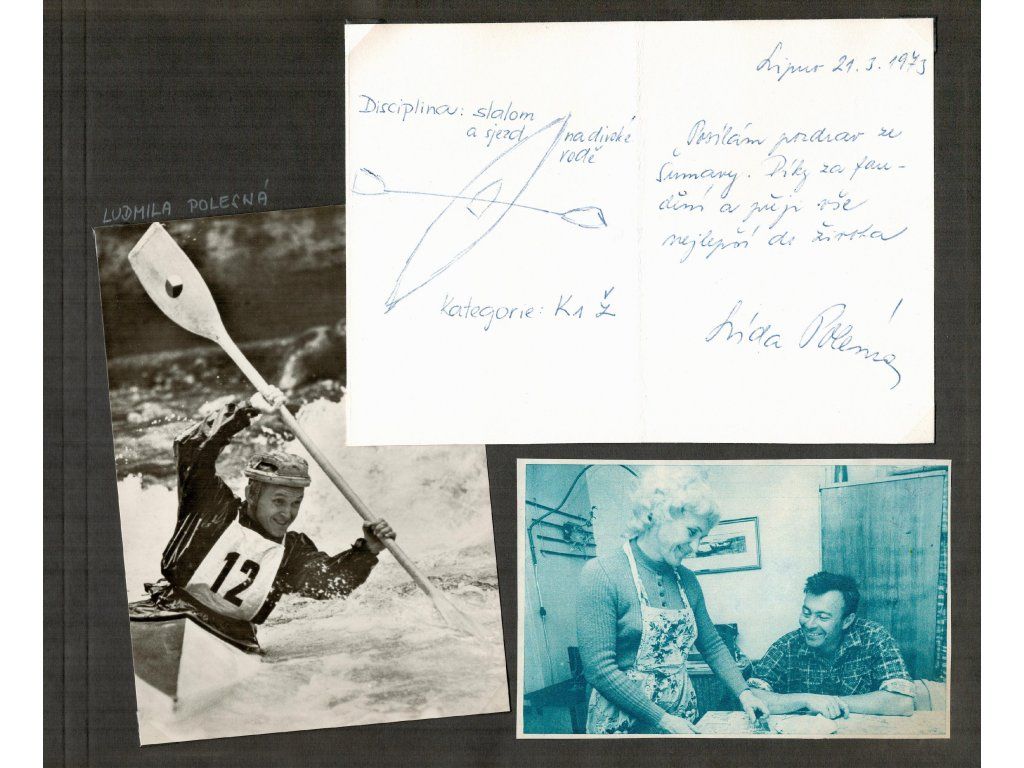 Lipno 21.3.1973
Disciplina: slalom
a sjezd na divoké
vodě
Kategorie: K1 Ž
Posílám pozdrav ze
Šumavy. Díky za fan-
dění a přeji vše
nejlepší do života
Lída Polesná
LUDMILA POLESNÁ
12